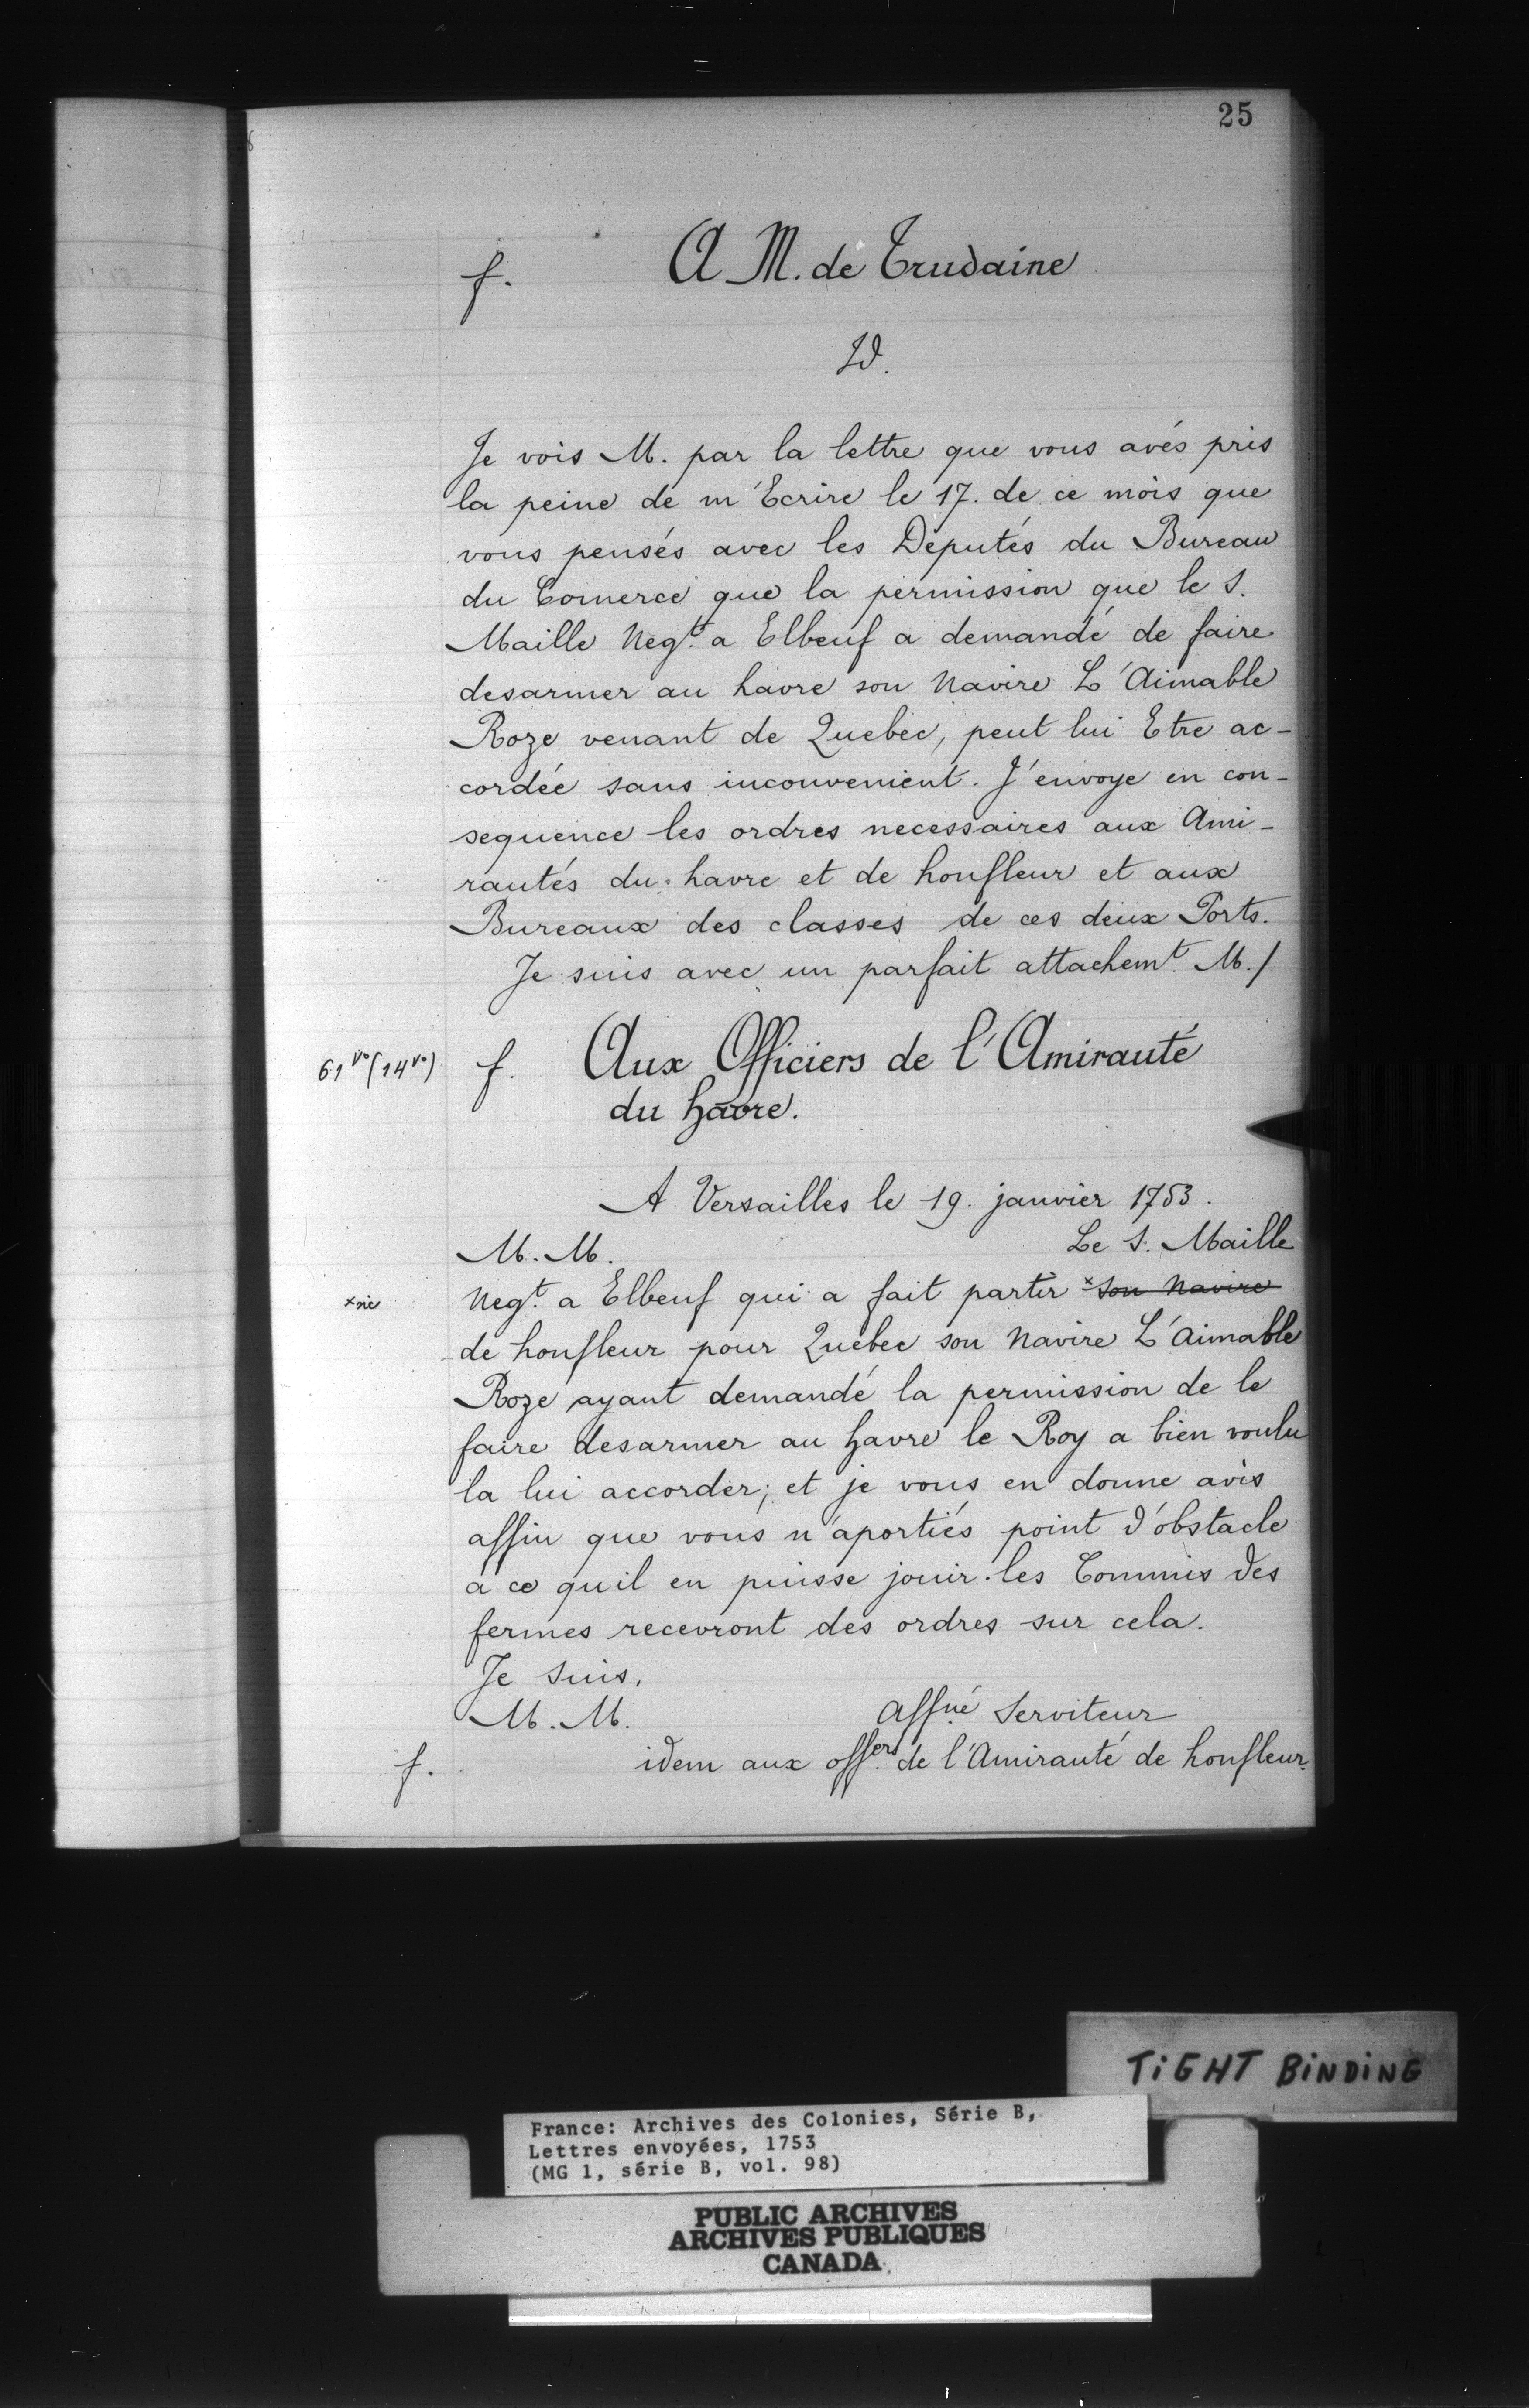 25
f. A M. de Trudaine
Id.
Je vois M. par la lettre que vous avés pris
la peine de m'Ecrire le 17. de ce mois que
vous pensés avec les Députés du Bureau
du Comerce que la permission que le S.
Maille Negt. a Elbeuf a demandé de faire
desarmer au havre son Navire L'Aimable
Roze venant de Quebec, peut lui Etre ac-
cordée sans inconvenient. J'envoye en con-
sequence les ordres necessaires aux Ami-
rautés du havre et de honfleur et aux
Bureaux des classes de ces deux Ports.
Je suis avec un parfait attachemt. M./
61 vo (14 vo) f. Aux Officiers de l'Amirauté
du havre.
A Versailles le 19. janvier 1753.
M. M. Le S. Maille
x sic Negt. a Elbeuf qui a fait partir x son Navire
de honfleur pour Quebec son Navire L'Aimable
Roze ayant demandé la permission de le
faire desarmer au havre le Roy a bien voulu
la lui accorder; et je vous en donne avis
affin que vous n'aportiés point d'obstacle
a ce quil en puisse jouir. les Commis des
fermes recevront des ordres sur cela.
Je suis,
M. M. Affné Serviteur
f. idem aux offers. de l'Amirauté de honfleur.
TIGHT BINDING
France: Archives des Colonies, Série B,
Lettres envoyées, 1753
(MG 1, série B, vol. 98)
PUBLIC ARCHIVES
ARCHIVES PUBLIQUES
CANADA